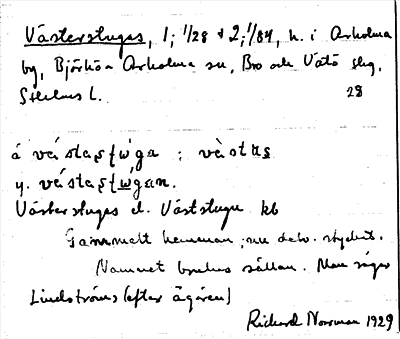 Västerstuges, 1; 1/28 + 2; 1/84, h. i Arholma
by, Björkö-Arholma sn, Bro och Vätö slg,
Sthlms l. 28
á västa
y.
Västerstuges el. Väststugu kb
Gammalt hemman; nu delv. styckat.
Namnet brukas sällan. Man säger
Lindströms (efter ägaren)
Richard Norman 1929